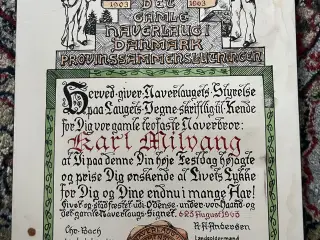 1903 1963
DET
GAMLE
NAVERLAUG I
DANMARK
PROVINSSAMMENSLUTNINGEN
Herved giver Naverlaugets Styrelse
paa Laugets Vegne skriftligt til Kende
for Dig vor gamle trofaste Naverbror:
Karl Milvang
At vi paa denne Din høje Festdag højagte
og prise Dig ønskende al Livets Lykke
for Dig og Dine endnu i mange Aar!
Giver og stadfæstet udi Odense under vor Haand og
det gamle Naverlaugs Signet. d. 25 August 1963
Chr. Bach A. A. Andersen
Landsoldermand